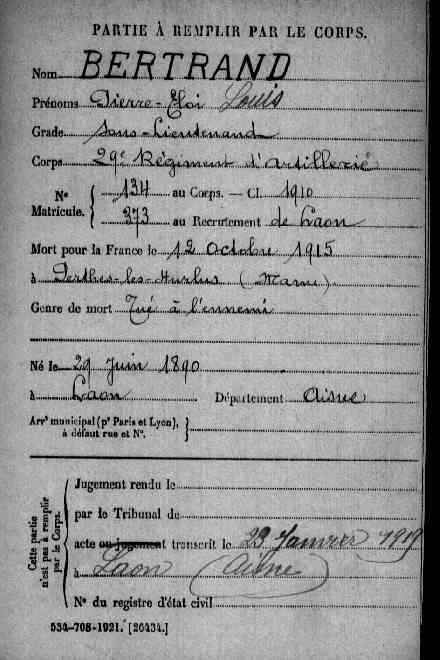 PARTIE À REMPLIR PAR LE CORPS.
Nom BERTRAND
Prénoms Pierre-Eloi Louis
Grade Sous-Lieutenand
Corps 29e Régiment d'artillerie
No Matricule. { 134 au Corps. — Cl. 1910
373 au Recrutement de Laon
Mort pour la France le 12 octobre 1915
à Perthes-les-Hurlus (Marne)
Genre de mort Tué à l'ennemi
Né le 29 Juin 1890
à Laon Département Aisne
Arrt municipal (pr Paris et Lyon), }
à défaut rue et No.
Cette partie n'est pas à remplir par le Corps. {
Jugement rendu le
par le Tribunal de
acte ou jugement transcrit le 23 Janvier 1919
à Laon (Aisne)
No du registre d'état civil
534-708-1921. [26434.]